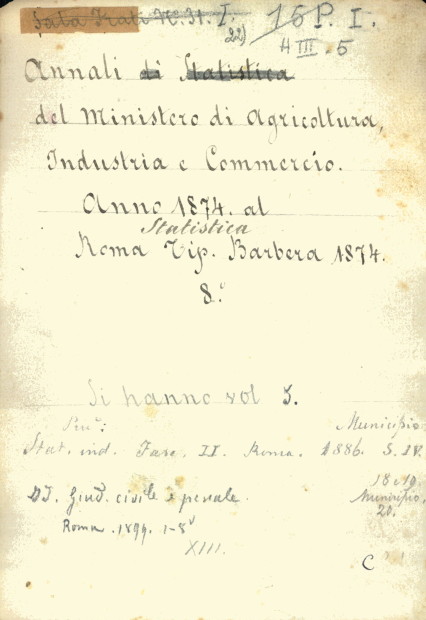 Sala Frati N.º 31. I. 16 P. I.
22) H III. 5
Annali di Statistica
del Ministero di Agricoltura,
Industria e Commercio.
Anno 1874. al
Statistica
Roma Tip. Barbera 1874.
8.º
Si hanno vol 5.
Municipio
Stat. ind. Fasc. II. Roma. 1886. S. IV.
18 e 19.
Giud. civile e penale. Municipio,
20.
Roma. 1899. 1-8º
XIII.
C